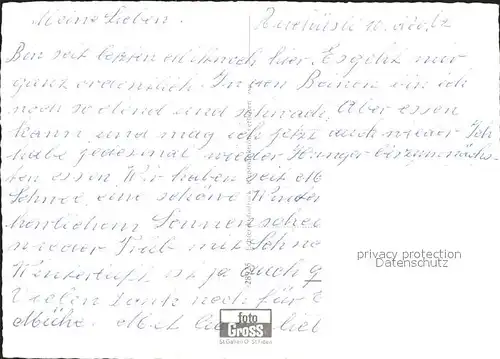 Meine Lieben.
Bin seit letzten Mittwoch hier. Es geht mir
ganz ordentlich. In den Beinen bin ich
noch so elend und schwach. Aber essen
kann und mag ich jetzt auch wieder Ich
habe jedesmal wieder Hunger bis zum näch-
sten essen Wir haben seit
Schnee, eine schöne Winter
herrlichem Sonnenschei
wieder Trüb mit Schne
Winterluft ist ja auch g
Vielen Dank noch für
Mühe.
privacy protection
Datenschutz
foto
GROSS
St. Gallen O St. Fiden